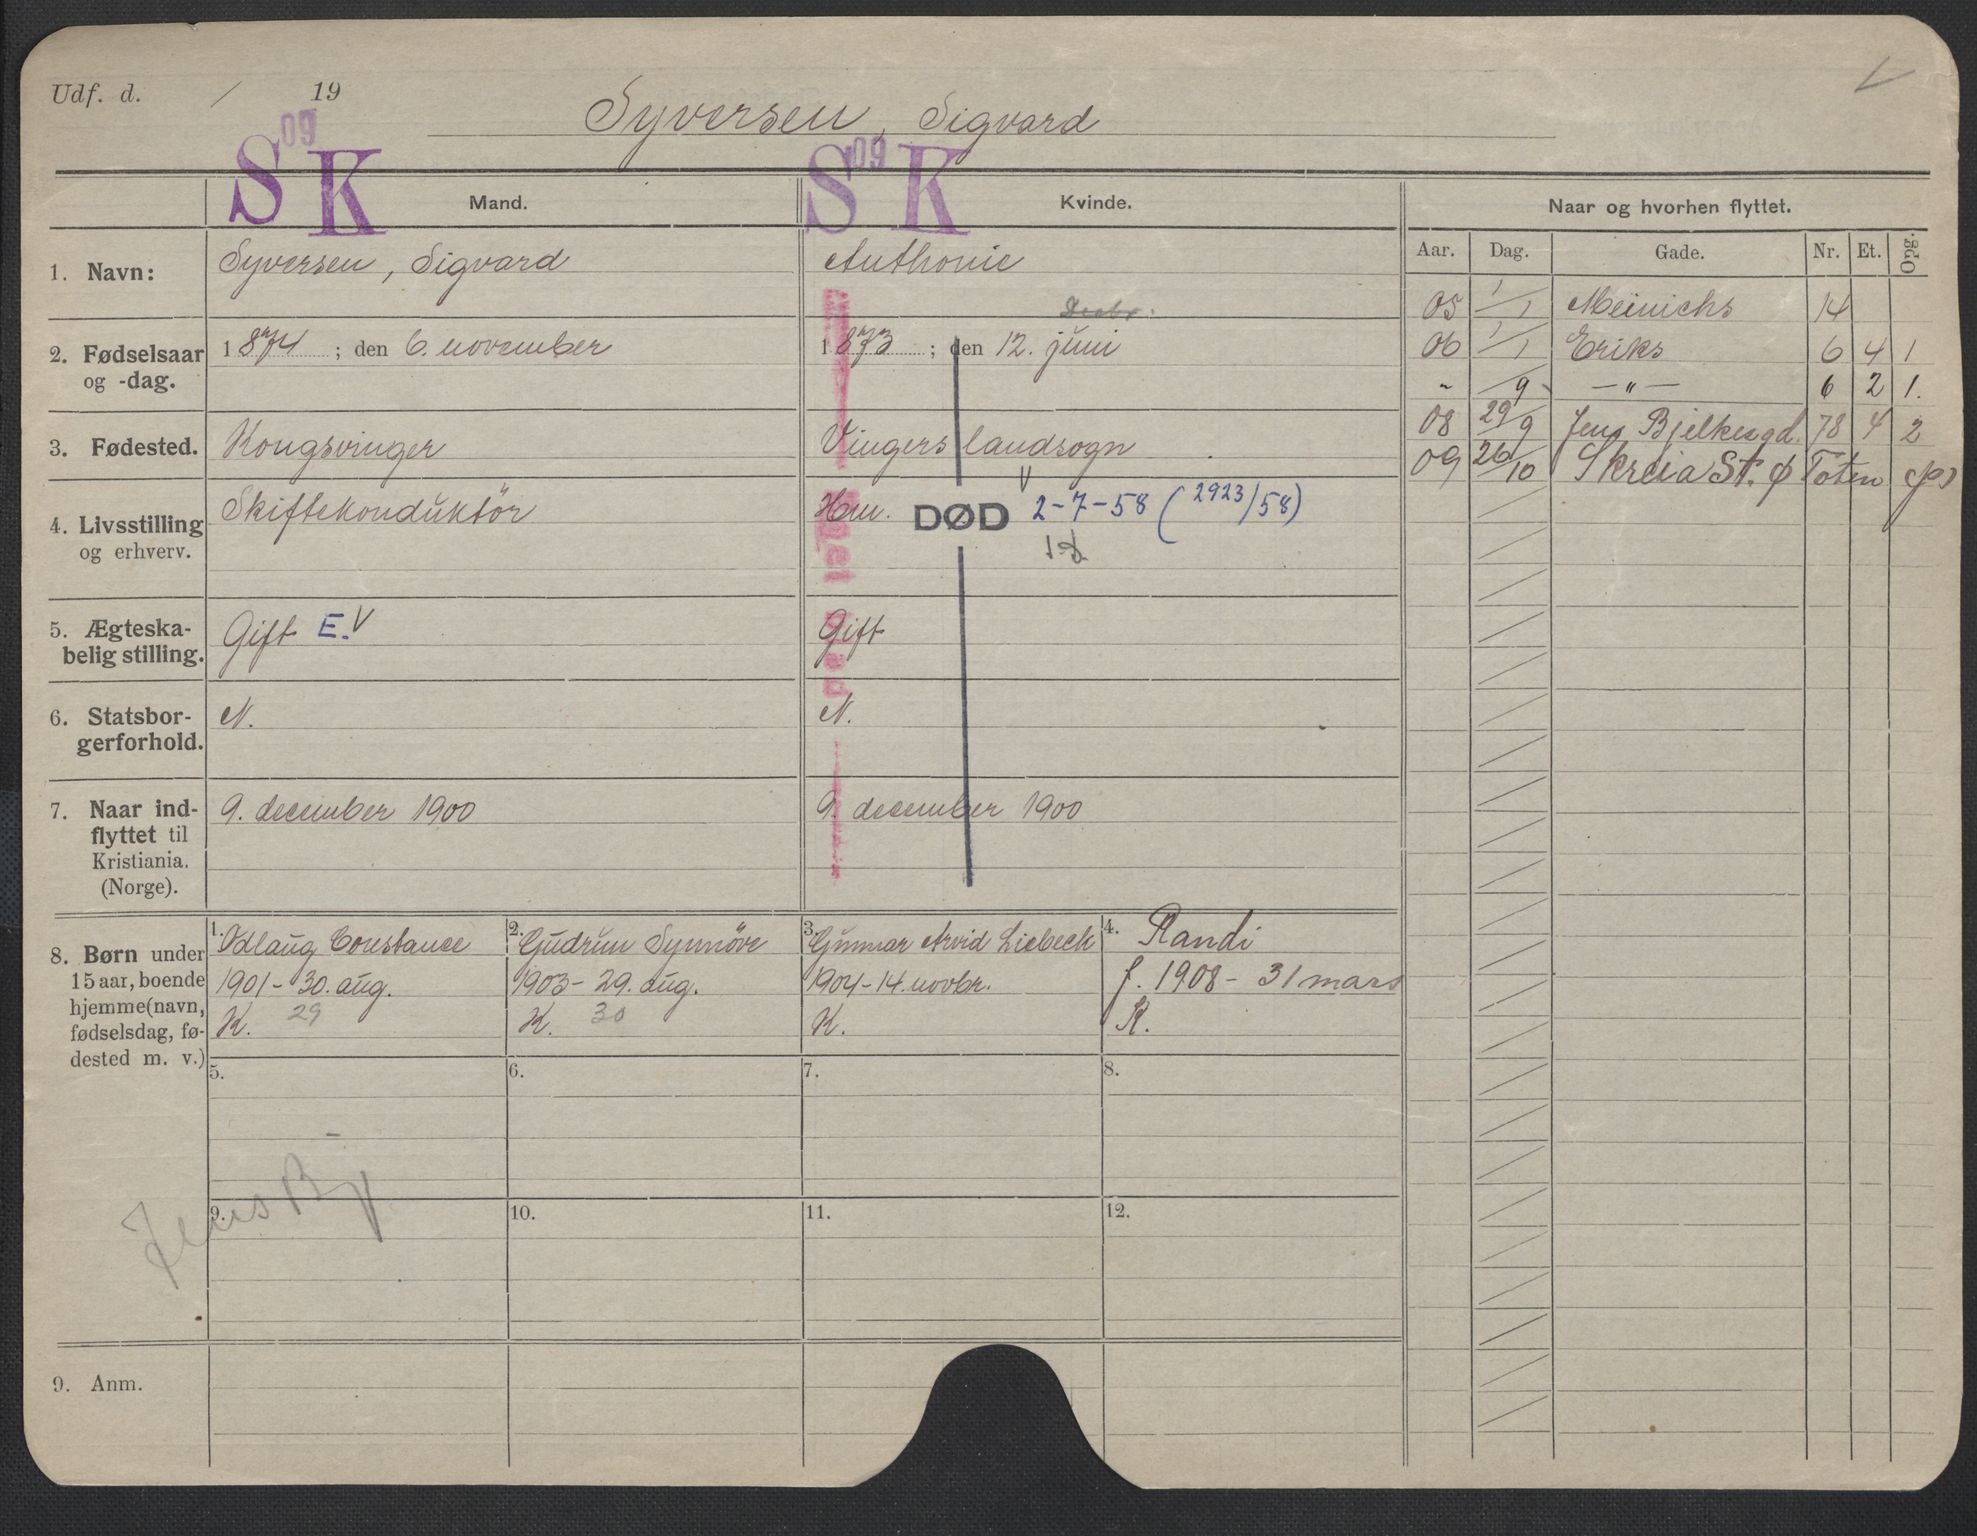 Udf. d. / 19
Syversen, Sigvard
S 09 K
S 09 K
Mand.
Kvinde.
Naar og hvorhen flyttet.
Aar. Dag. Gade. Nr. Et. Opg.
1. Navn: Syversen, Sigvard
Anthonie
2. Fødselsaar og -dag. 1874 ; den 6. november
1873 ; den 12. juni
3. Fødested. Kongsvinger
Vingers landsogn
4. Livsstilling og erhverv. Skiftekonduktör
Hm. DØD 2-7-58 (2923/58)
5. Ægteska-
belig stilling. Gift E.V
Gift
6. Statsbor-
gerforhold. N.
N.
7. Naar ind-
flyttet til
Kristiania.
(Norge).
9. december 1900
9. december 1900
05 1/1 Meinichs 14
06 1/1 Eriks 6 4 1
" /9 — " — 6 2 1.
08 29/9 Jens Bjelkesgd. 78 4 2
09 26/10 Skreia St. Ø Toten
8. Børn under
15 aar, boende
hjemme (navn,
fødselsdag, fø-
dested m. v.)
1. Odlaug Constance
1901 - 30. aug.
K. 29
2. Gudrun Synnöve
1903 - 29. aug.
K. 30
3. Gunnar Arvid Liebeck
1904 - 14. novbr.
K.
4. Randi
f. 1908 - 31 mars
K.
5.
6.
7.
8.
Jens Bj
9.
10.
11.
12.
9. Anm.